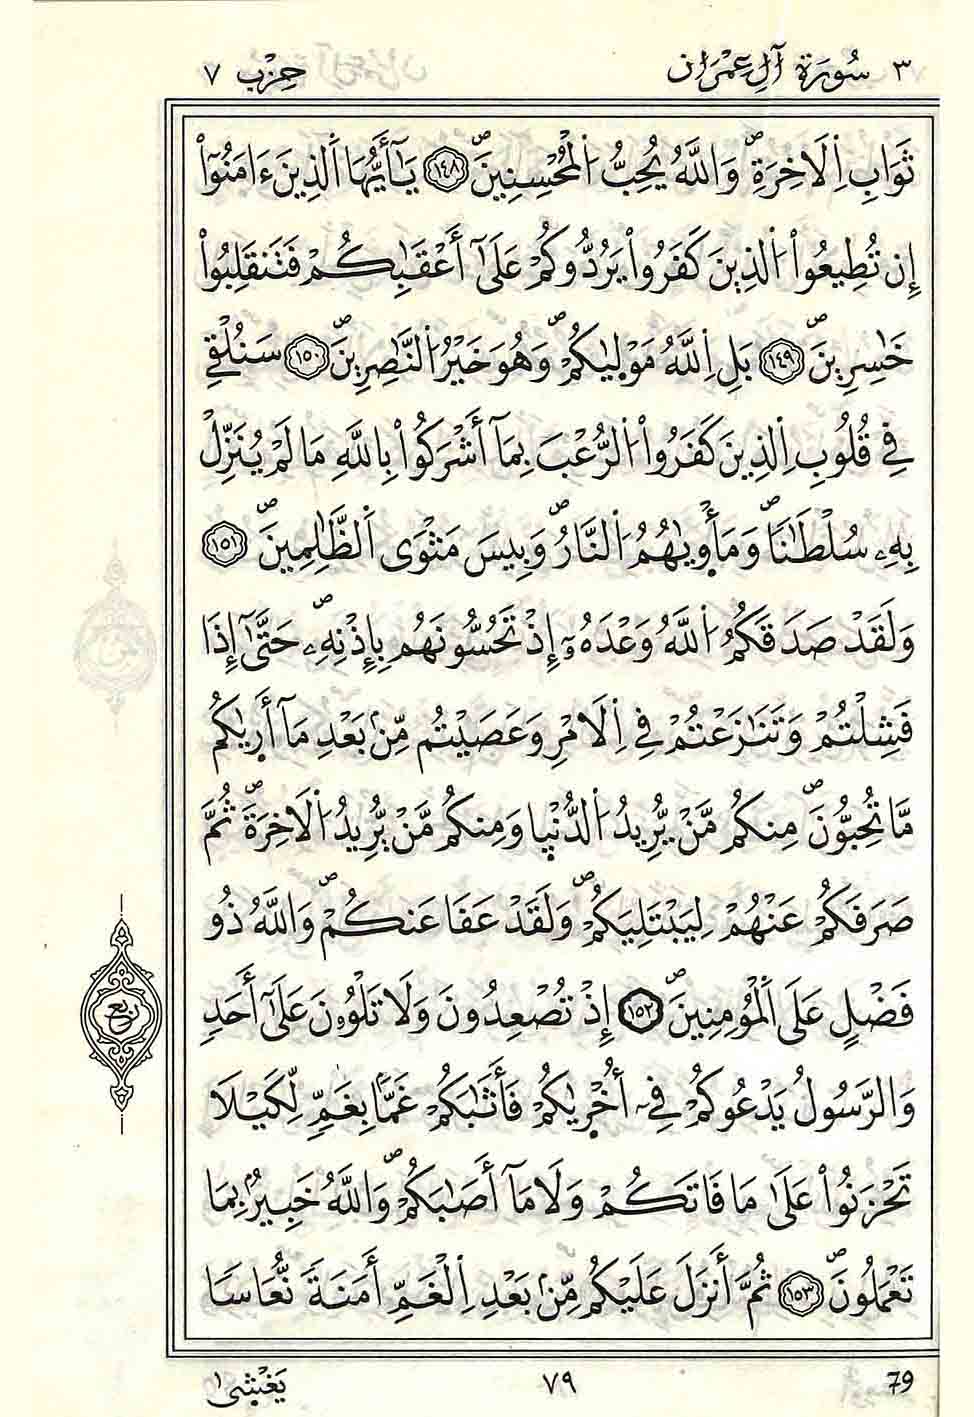 ٣ سُورَةُ آلِ عِمْرَان حِزْب ٧
ثَوَابِ اِ۬لَاخِرَةِۖ وَاللَّهُ يُحِبُّ اُ۬لْمُحْسِنِينَۖ ١٤٨ يَٰٓأَيُّهَا اَ۬لذِينَ ءَامَنُوٓاْ
إِن تُطِيعُواْ اُ۬لذِينَ كَفَرُواْ يَرُدُّوكُمْ عَلَىٰٓ أَعْقَٰبِكُمْ فَتَنقَلِبُواْ
خَٰسِرِينَۖ ١٤٩ بَلِ اِ۬للَّهُ مَوْلِيٰكُمْۖ وَهُوَ خَيْرُ اُ۬لنَّٰصِرِينَۖ ١٥٠ سَنُلْقِے
فِے قُلُوبِ اِ۬لذِينَ كَفَرُواْ اُ۬لرُّعْبَ بِمَآ أَشْرَكُواْ بِاللَّهِ مَا لَمْ يُنَزِّلْ
بِهِۦ سُلْطَٰنٗاۖ وَمَأْوِيٰهُمُ اُ۬لنَّارُۖ وَبِيسَ مَثْوَى اَ۬لظَّٰلِمِينَۖ ١٥١
وَلَقَدْ صَدَقَكُمُ اُ۬للَّهُ وَعْدَهُۥٓ إِذْ تَحُسُّونَهُم بِإِذْنِهِۦۖ حَتَّىٰٓ إِذَا
فَشِلْتُمْ وَتَنَٰزَعْتُمْ فِے اِ۬لَامْرِ وَعَصَيْتُم مِّنۢ بَعْدِ مَآ أَر۪يٰكُم
مَّا تُحِبُّونَۖ مِنكُم مَّنْ يُّرِيدُ اُ۬لدُّنْي۪ا وَمِنكُم مَّنْ يُّرِيدُ اُ۬لَاخِرَةَۖ ثُمَّ
صَرَفَكُمْ عَنْهُمْ لِيَبْتَلِيَكُمْۖ وَلَقَدْ عَفَا عَنكُمْۖ وَاللَّهُ ذُو
فَضْلٍ عَلَى اَ۬لْمُؤْمِنِينَۖ ١٥٢ إِذْ تُصْعِدُونَ وَلَا تَلْوُۥنَ عَلَىٰٓ أَحَدٖ
وَالرَّسُولُ يَدْعُوكُمْ فِےٓ أُخْر۪يٰكُمْ فَأَثَٰبَكُمْ غَمَّاۢ بِغَمّٖ لِّكَيْلَا
تَحْزَنُواْ عَلَىٰ مَا فَاتَكُمْ وَلَا مَآ أَصَٰبَكُمْۖ وَاللَّهُ خَبِيرُۢ بِمَا
تَعْمَلُونَۖ ١٥٣ ثُمَّ أَنزَلَ عَلَيْكُم مِّنۢ بَعْدِ اِ۬لْغَمِّ أَمَنَةٗ نُّعَاسٗا
ربع
79 ٧٩ يَغْش۪ىٰ